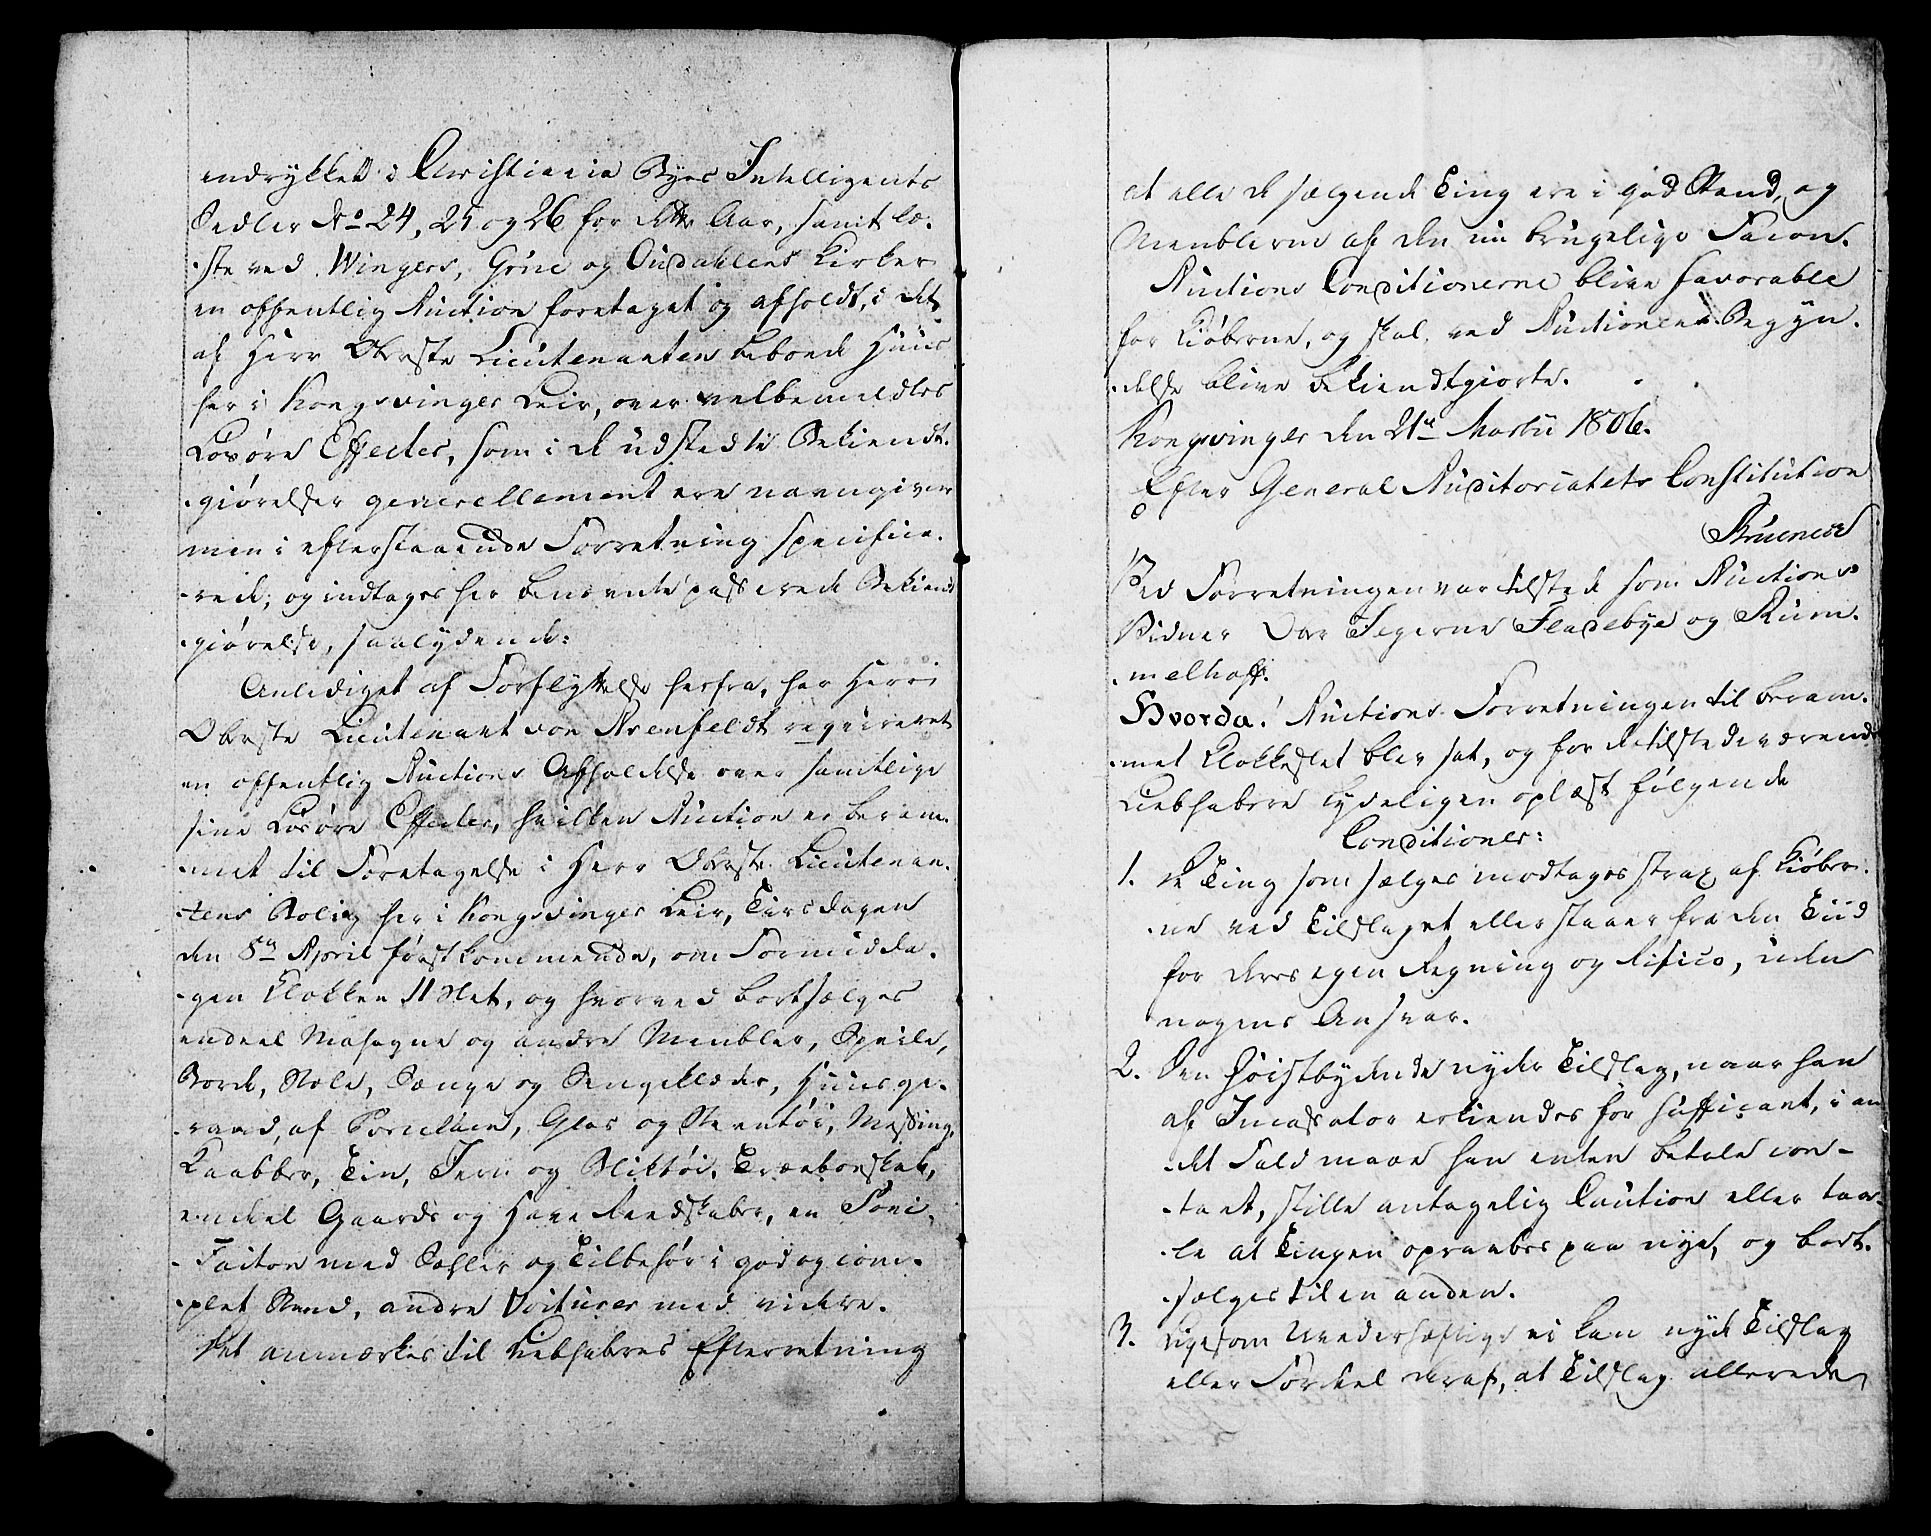 indrykket i Christiania Byes Intelligents
Sedler No 24, 25 og 26 for dette Aar, samt læ-
-ste ved Wingers, Grue og Oudahlens Kirker
en offentlig Auction foretaget og afholdt, i det
af Herr Oberste Lieutenanten beboede Huus
her i Kongsvinger Leir, over velbemeldtes
Løsøre Effecter, som i de udstedte Bekiendt-
-giørelser generellement ere navngivne
men i efterstaaende Forretning specifice-
-rede, og indtages her benævnte passerede Bekiendt
-giørelse, saalydende:
Anlediget af Forflyttelse herfra, har Herr
Oberste Lieutenant von Arenfeldt requireret
en offentlig Auctions Afholdelse over samtlige
sine Løsøre Effecter, hvilken Auction er beram-
-met til Foretagelse i Herr Oberste Lieutenan-
-tens Bolig her i Kongsvinger Leir, Tirsdagen
den 8de April førstkommende, om Formidda-
-gen Klokken 11 Slet, og hvorved bortsælges
endeel Mahogne og andre Meubler, Speile,
Borde, Stole, Senge og Sengeklæder, Huusge-
-raad, af Porcelain, Glas og Steentøi, Messing,
Kaabber, Tin, Jern og Bliktøi, Træeboeskab,
enckel Gaards og Have Reedskaber, en Foni-
-Faiton med Sæhler og Tilbehør i god og com-
-plet Stand, andre Voiturer med videre.
Det anmærkes til Liebhabres Efterretning
at alle de sælgende Ting ere i god Stand, og
Meublerne af den nu brugelige Facon.
Auctions Conditionerne blive favorable
for Kiøberne, og skal ved Auctionens Begyn-
-delse blive bekiendtgiorte.
Kongsvinger den 21de Martii 1806.
Efter General Auditoriatets Constitution
Struenese
Ved Forretningen var tilstede som Auctions
Vidner Over Jegerne Fladebye og Rum-
-melhoff.
Hvorda! Auctions Forretningen til beram-
-met Klokkeslet blev sat, og for de tilstedeværende
Liebhabere lydeligen oplæst følgende
Conditioner:
1. De Ting som sælges modtages strax af Kiøber-
-ne ved Tilslaget eller staaer fra den Tiid
for deres egen Regning og Risico, uden
nogens Ansvar.
2. Den høistbydende nyder Tilslag, naar han
af Incassator erkiendes for sufficant, i an-
-det Fald maae han enten betale con-
-tant, stille antagelig Caution eller taa-
-le at Tingen opraabes paa nye, og bort-
-sælges til en anden.
3. Ligesom Uvederhæftige ei kan nyde Tilslag
eller Fordeel deraf, at Tilslag allerede